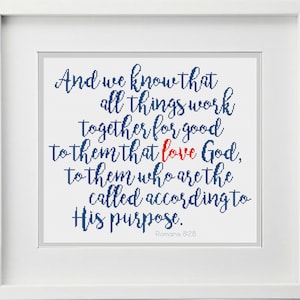 And we know that
all things work
together for good
to them that love God,
to them who are the
called according to
His purpose.
Romans 8:28